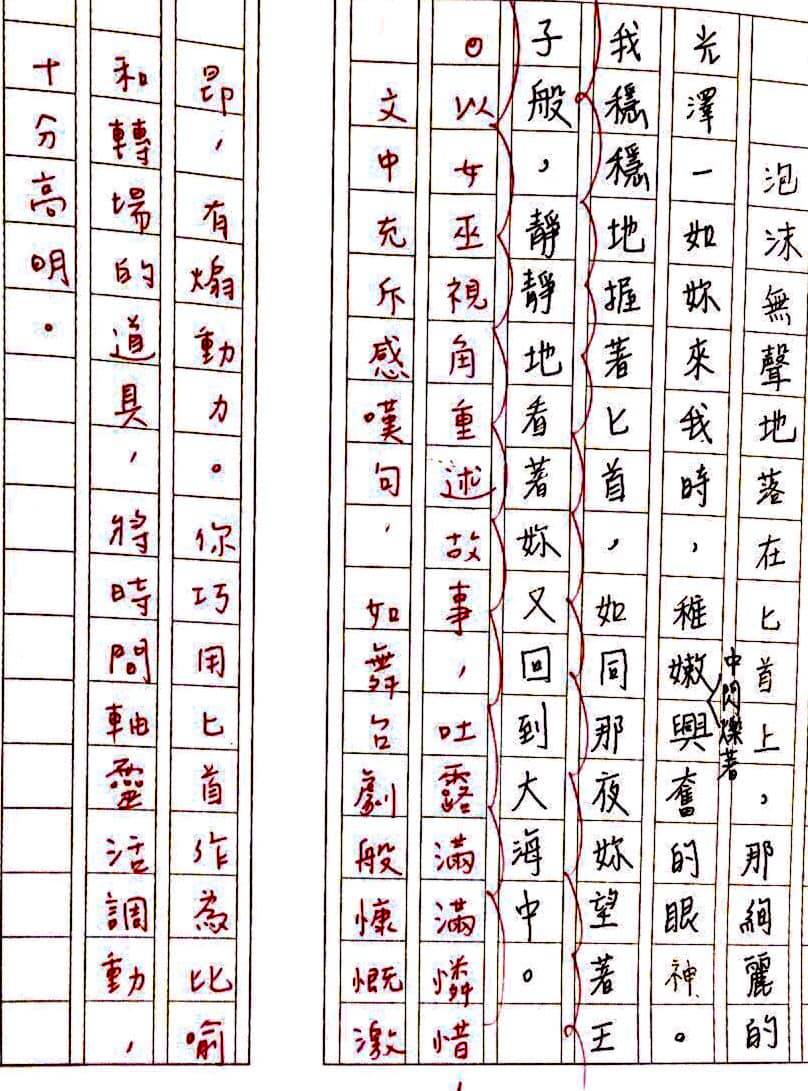 泡沫無聲地落在匕首上，那絢麗的
光澤一如妳來我時，稚嫩興奮的眼神。
中閃爍著
我穩穩地握著匕首，如同那夜妳望著王
子般，靜靜地看著妳又回到大海中。
。以女巫視角重述故事，吐露滿滿憐惜，
文中充斥感嘆句，如舞台劇般慷慨激
昂，有煽動力。你巧用匕首作為比喻
和轉場的道具，將時間軸靈活調動，
十分高明。